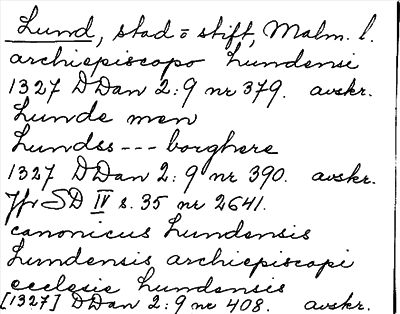 Lund, stad = stift, Malm. l.
archiepiscopo Lundensi
1327 DDan 2:9 nr 379. avskr.
Lunde men
Lundss --- borghere
1327 DDan 2:9 nr 390. avskr.
Jfr SD IV s. 35 nr 2641.
canonicus Lundensis
Lundensis archiepiscopi
ecclesie Lundensis
[1327] DDan 2:9 nr 408. avskr.